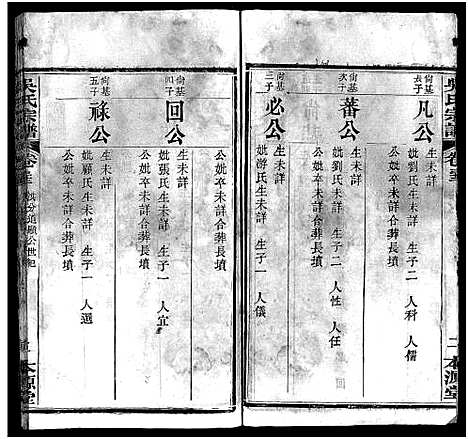 吳氏宗譜
卷三
二 本源堂
尙基長子
凡公
生未詳
妣劉氏生未詳 生子二 人科 人儒
公妣卒未詳合葬長墳
尙基次子
蕃公
生未詳
妣劉氏生未詳 生子二 人性 人任
公妣卒未詳合葬長墳
尙基三子
必公
生未詳
妣游氏生未詳 生子一 人儀
公妣卒未詳合葬長墳
尙基四子
回公
生未詳
妣張氏生未詳 生子一 人宜
公妣卒未詳合葬長墳
尙基五子
祿公
生未詳
妣顧氏生未詳 生子一 人選
公妣卒未詳合葬長墳
吳氏宗譜
卷三
分道顯公世紀
本源堂